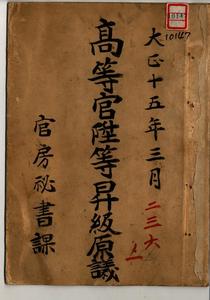 大正十五年三月
二三六
高等官陞等昇級原議
官房秘書課
10147